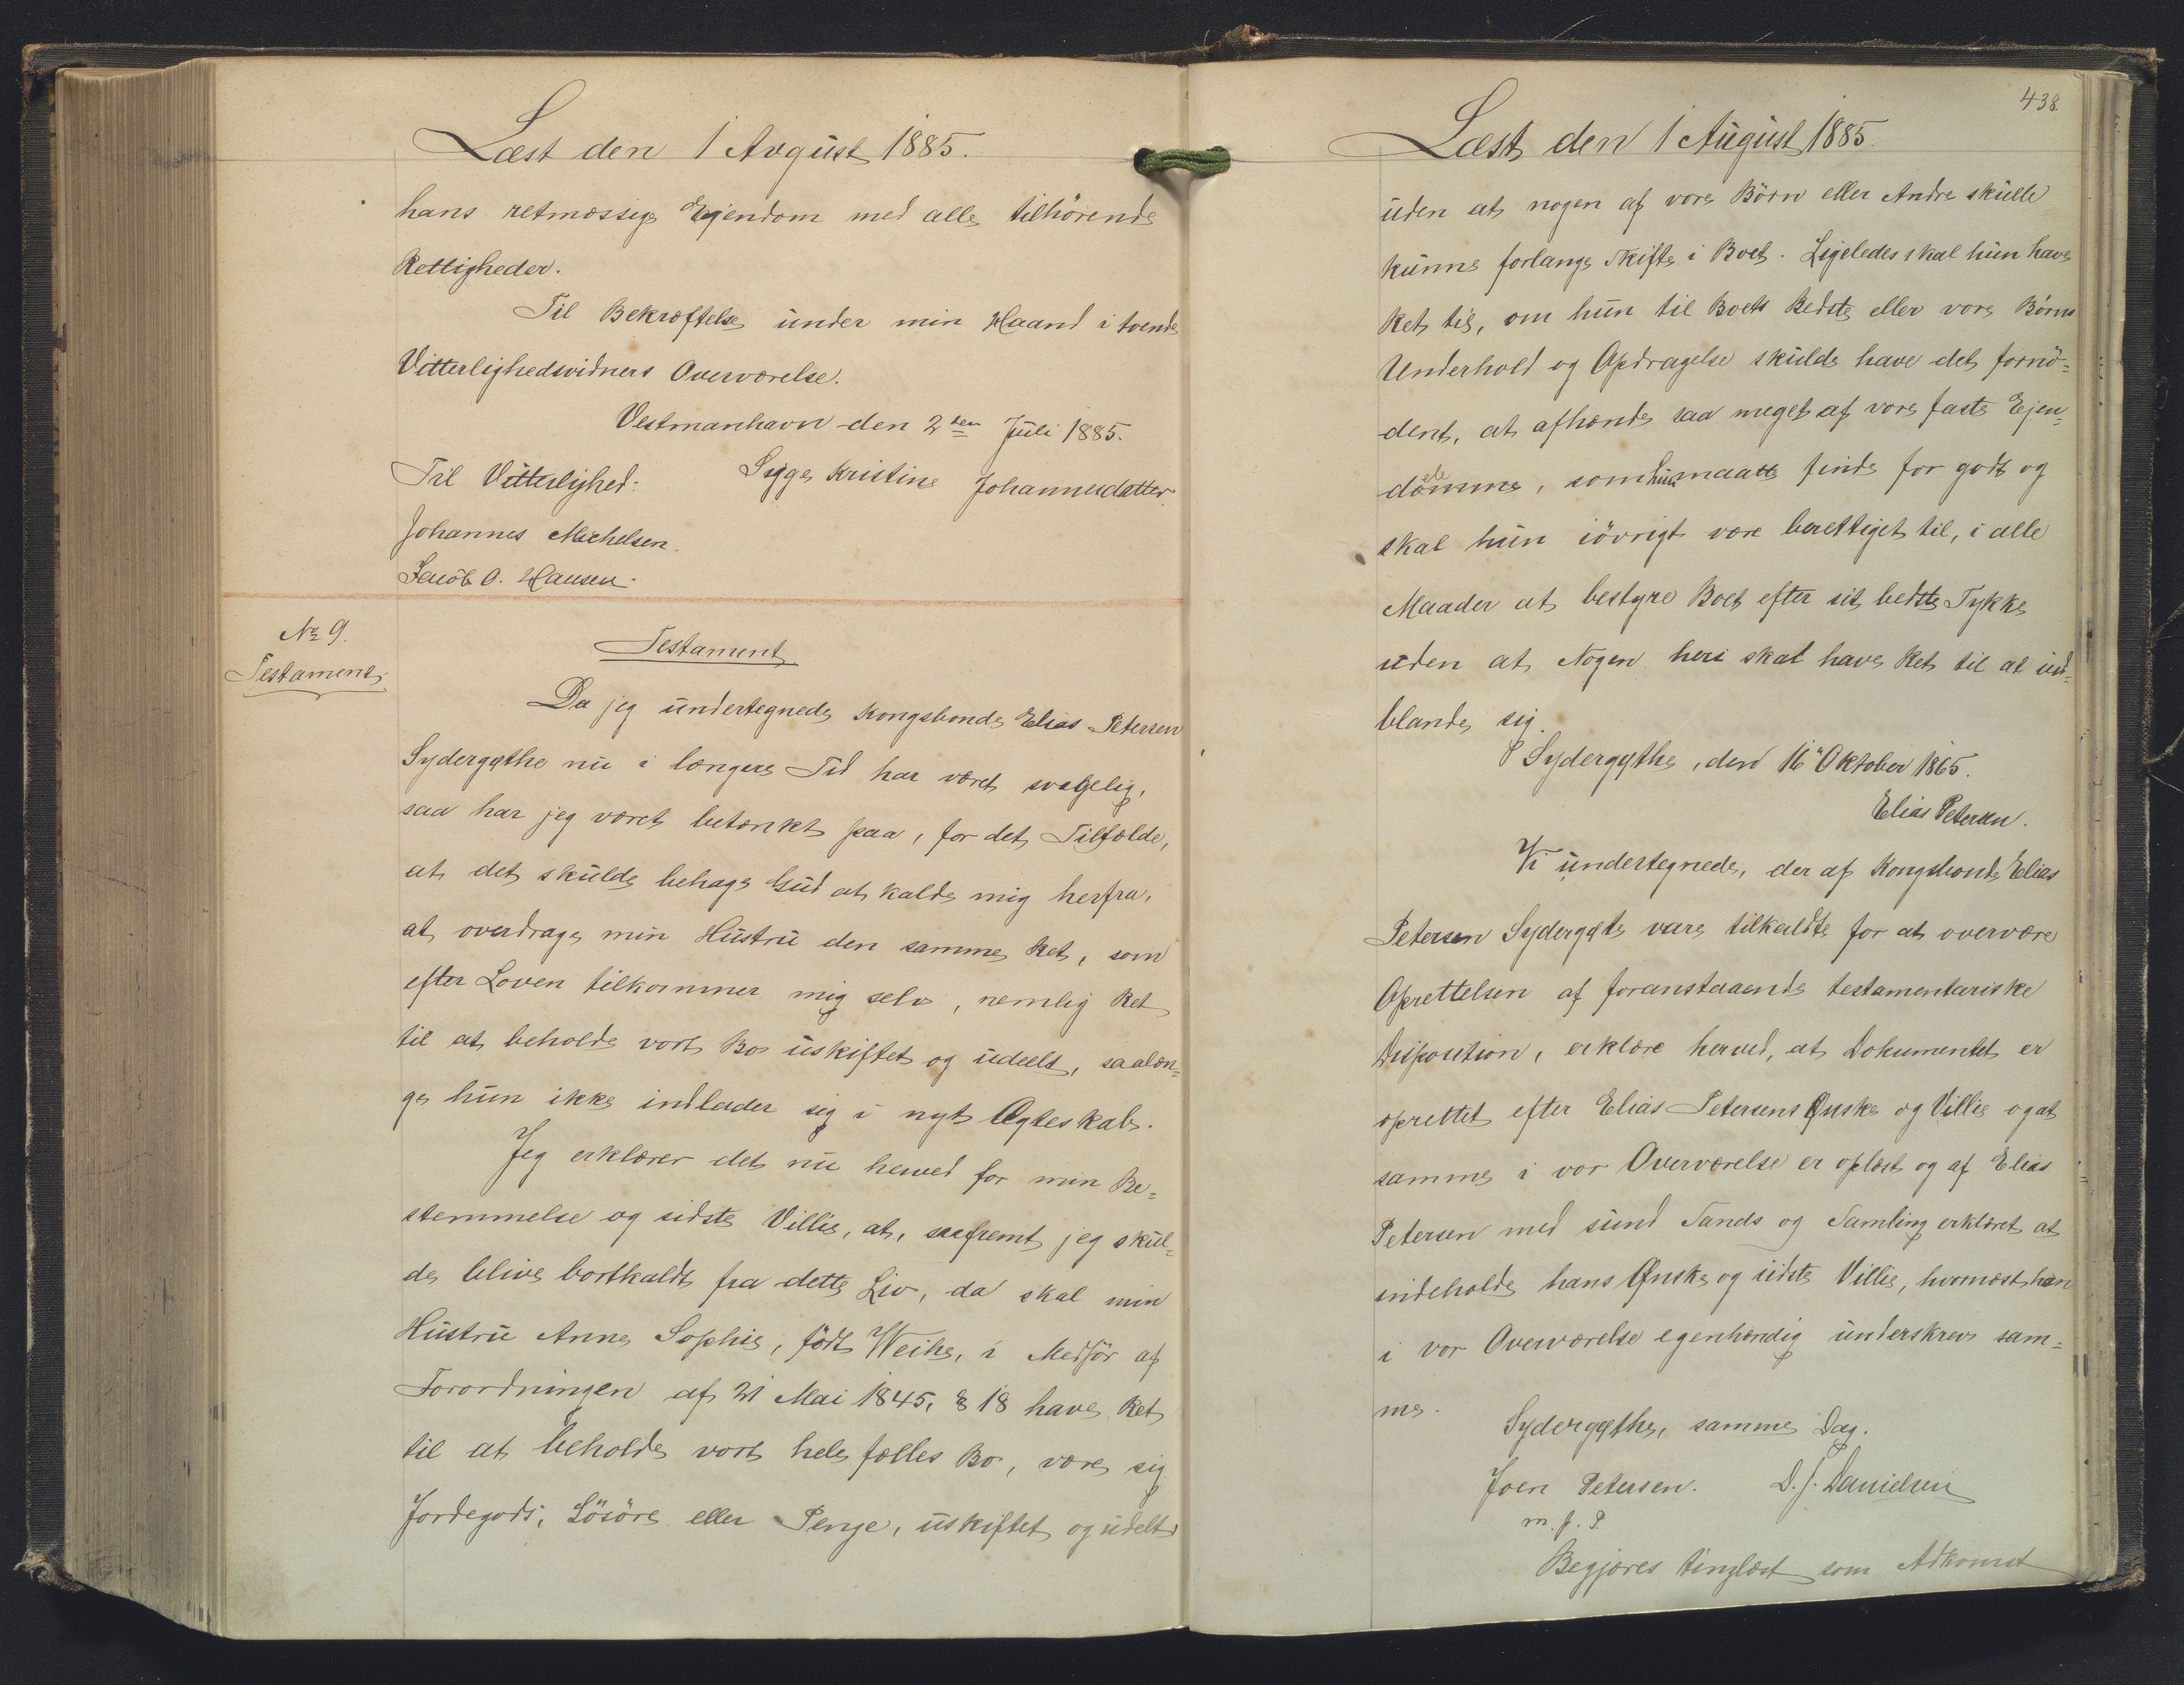 Læst den 1 Avgust 1885.
hans retmæssige Ejendom med alle tilhörende
Rettigheder.
Til Bekræftelse under min Haand i tvende
Vitterlighedsvidners Overværelse.
Vestmanhavn den 2den Juli 1885.
Sigge Kristine Johannesdatter.
Til Vitterlighed:
Johannes Michelsen.
Jacob O. Hansen.
No 9.
Testament.
Testament
Da jeg undertegnede Kongsbonde Elias Petersen
Sydergøthe nu i længere Tid har været svagelig,
saa har jeg været betænkt paa, for det Tilfælde,
at det skulde behage Gud at kalde mig herfra,
at overdrage min Hustru den samme Ret, som
efter Loven tilkommer mig selv, nemlig Ret
til at beholde vort Bo uskiftet og udeelt, saalæn=
ge hun ikke indlader sig i nyt Ægteskab.
Jeg erklærer det nu herved for min Be=
stemmelse og sidste Villie, at, saafremt jeg skul=
de blive bortkaldt fra dette Liv, da skal min
Hustru Anne Sophie, födt Weihe, i Medför af
Forordningen af 21 Mai 1845, § 18 have Ret
til at beholde vort hele fælles Bo, være sig
Jordegods, Lösöre eller Penge, uskiftet og udelt
438
Læst den 1 August 1885.
uden at nogen af vore Börn eller Andre skulle
kunne forlange Skifte i Boet. Ligeledes skal hun have
Ret til, om hun til Boets Bedste eller vore Börns
Underhold og Opdragelse skulde have det fornö=
dent, at afhænde saa meget af vore faste Ejen=
domme, som hun maatte finde for godt og
skal hun iövrigt være berettiget til, i alle
Maader at bestyre Boet efter sit bedste Tykke
uden at Nogen heri skal have Ret til at ind=
blande sig.
Sydergøthe, den 16 Oktober 1865.
Elias Petersen.
Vi undertegnede, der af Kongsbonde Elias
Petersen Sydergøte vare tilkaldte for at overvære
Oprettelsen af foranstaaende testamentariske
Disposition, erklære herved, at Dokumentet er
oprettet efter Elias Petersens Ønske og Villie og at
samme i vor Overværelse er oplæst og af Elias
Petersen med sund Sands og Samling erklæret at
indeholde hans Ønske og sidste Villie, hvornæst han
i vor Overværelse egenhændig underskrev sam=
me.
Sydergøthe, samme Dag.
Joen Petersen. D. J. Danielsen
m. f. P.
Begjæres tinglæst som Adkomst